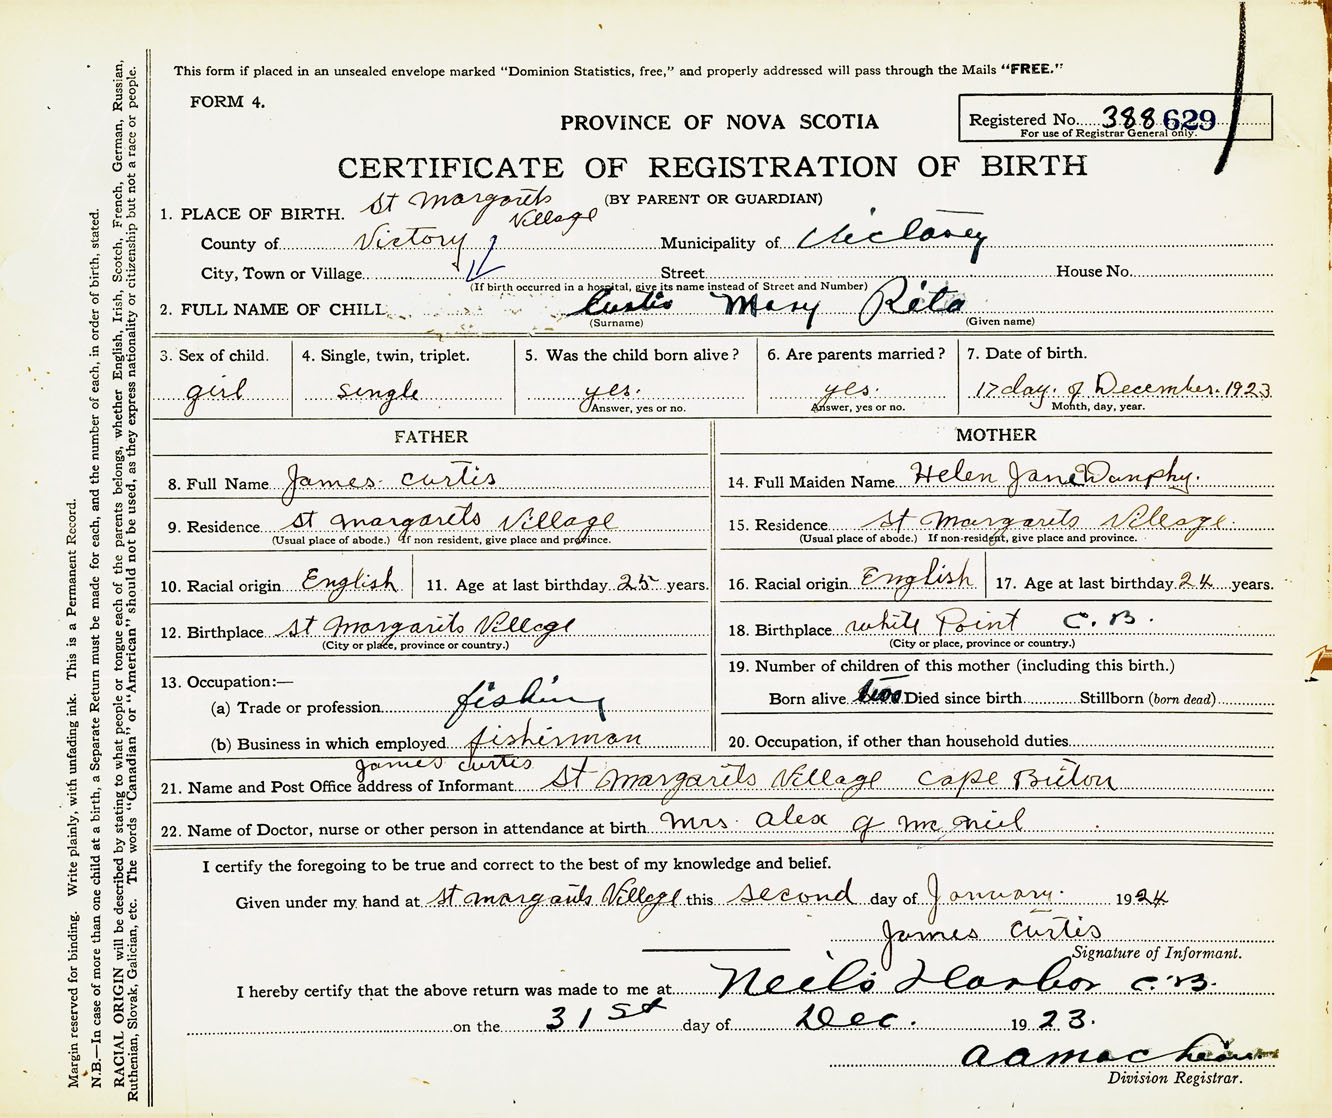 This form if placed in an unsealed envelope marked "Dominion Statistics, free," and properly addressed will pass through the Mails "FREE."
FORM 4.
Registered No. 388 629
For use of Registrar General only.
PROVINCE OF NOVA SCOTIA
CERTIFICATE OF REGISTRATION OF BIRTH
(BY PARENT OR GUARDIAN)
1. PLACE OF BIRTH. St Margarets Village
County of Victory Municipality of
City, Town or Village Street House No.
(If birth occurred in a hospital, give its name instead of Street and Number)
2. FULL NAME OF CHILD Curtis Mary Rita
(Surname) (Given name)
3. Sex of child. 4. Single, twin, triplet. 5. Was the child born alive? 6. Are parents married? 7. Date of birth.
girl single yes. yes. 17 day. of December. 1923
Answer, yes or no. Answer, yes or no. Month, day, year.
FATHER MOTHER
8. Full Name James Curtis 14. Full Maiden Name Helen Jane Dunphy.
9. Residence St Margarets Village 15. Residence St Margarets Village.
(Usual place of abode.) If non resident, give place and province. (Usual place of abode.) If non-resident, give place and province.
10. Racial origin English 11. Age at last birthday 25 years. 16. Racial origin English 17. Age at last birthday 24 years.
12. Birthplace St Margarets Village 18. Birthplace White Point C. B.
(City or place, province or country.) (City or place, province or country.)
19. Number of children of this mother (including this birth.)
13. Occupation:—
(a) Trade or profession fishing Born alive two Died since birth Stillborn (born dead)
(b) Business in which employed fisherman 20. Occupation, if other than household duties
James Curtis
21. Name and Post Office address of Informant St Margarets Village Cape Briton
22. Name of Doctor, nurse or other person in attendance at birth Mrs. Alex G McNiel
I certify the foregoing to be true and correct to the best of my knowledge and belief.
Given under my hand at St Margarets Village this second day of January. 1924
James Curtis
Signature of Informant.
I hereby certify that the above return was made to me at Neils Harbor C.B.
on the 31st day of Dec. 1923.
A A Mac
Division Registrar.
Margin reserved for binding. Write plainly, with unfading ink. This is a Permanent Record.
N.B.—In case of more than one child at a birth, a Separate Return must be made for each, and the number of each, in order of birth, stated.
RACIAL ORIGIN will be described by stating to what people or tongue each of the parents belongs, whether English, Irish, Scotch, French, German, Russian,
Ruthenian, Slovak, Galician, etc. The words "Canadian" or "American" should not be used, as they express nationality or citizenship but not a race or people.